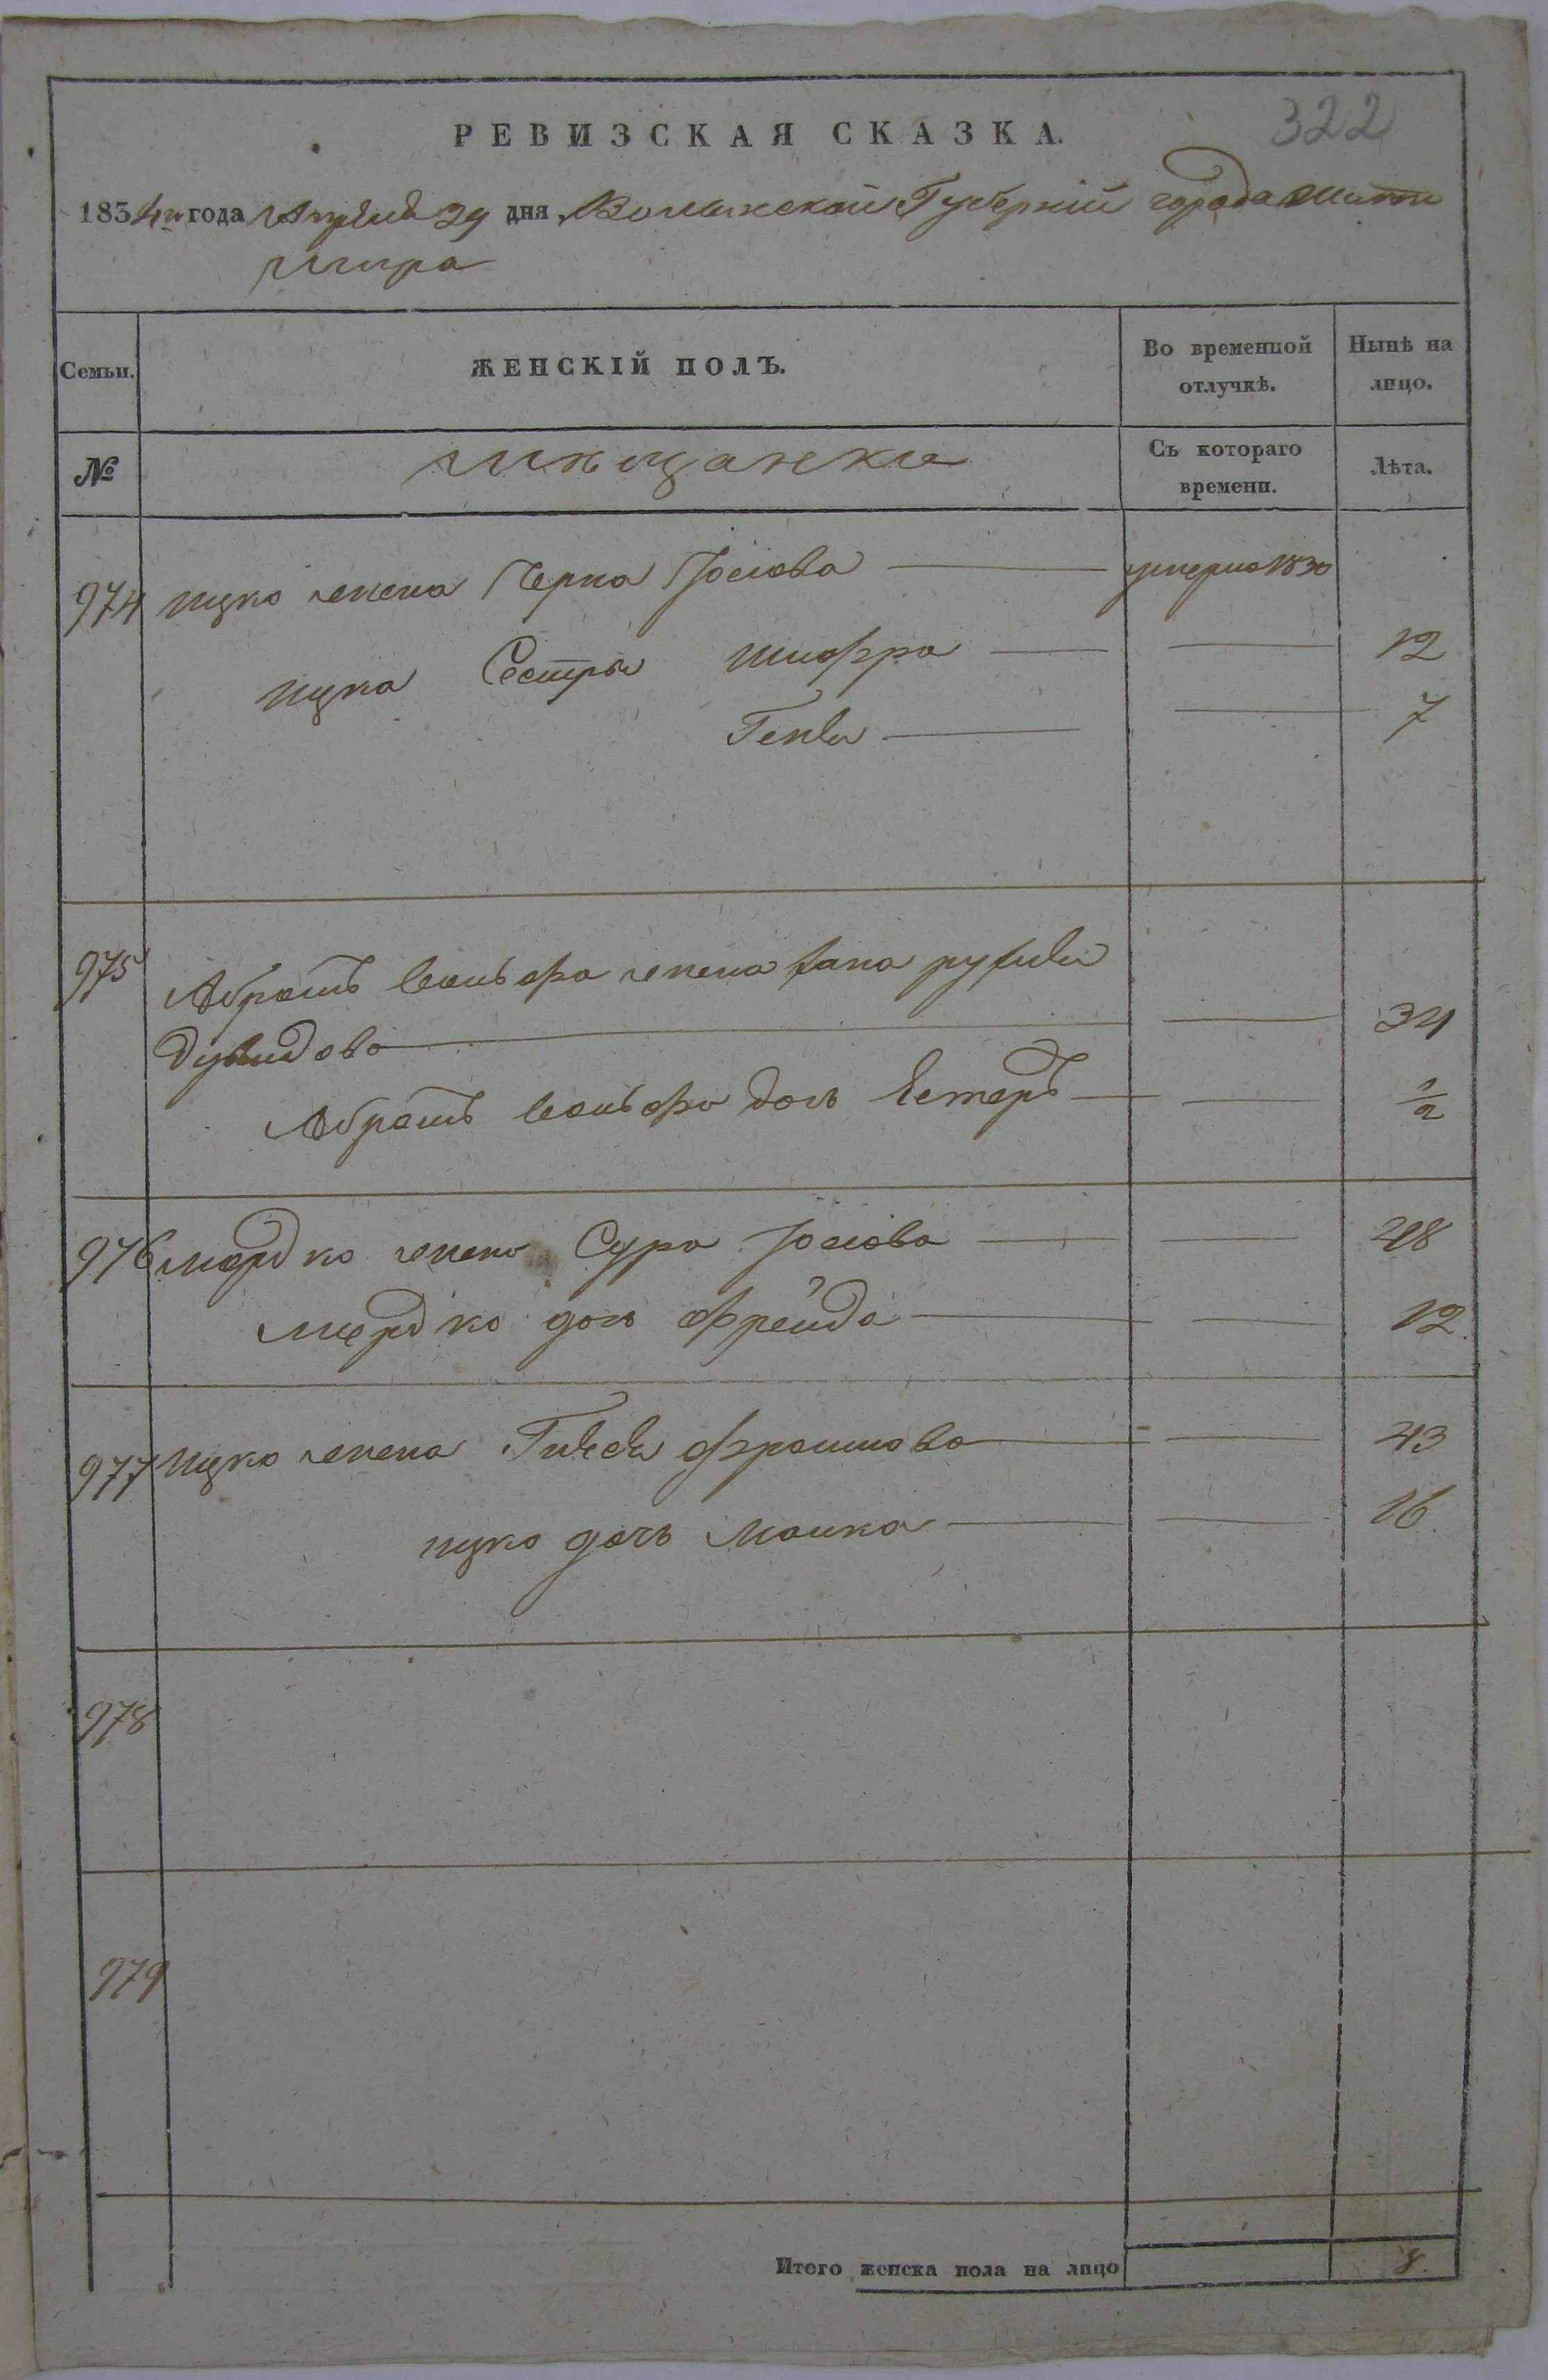 322
РЕВИЗСКАЯ СКАЗКА.
1834 года Апреля 29 дня, Волынской Губернии города Жито
мира
Семьи. ЖЕНСКІЙ ПОЛЪ. Во временной отлучкѣ. Нынѣ на лицо.
№ мѣщанки Съ котораго времени. Лѣта.
974 ицко жена Перла Іосiова — умерла 1830
ицка Сестры Шифра — — 12
Генвя — — 7
975 Абрамъ вольфа жена хана рухля
Дувидова — — 34
Абрамъ вольфа дочь Естеръ — — 1/2
976 мордко жена Сура Іосiова — — 28
Мордко дочь Фрейда — — 12
977 ицко жена — — 43
ицко дочь Малка — — 16
978
979
Итого женска пола на лицо 8.